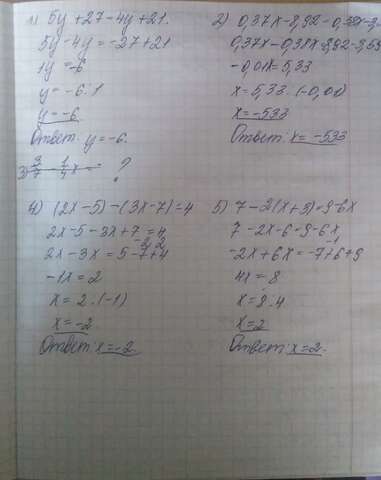 1) 5y+27-4y+21.
5y-4y=-27+21
1y=-6
y=-6:1
y=-6.
Ответ: y=-6.
3) 3/7 - 1/4 x = - ?
2) 0,37x-8,92=0,38x-3,
0,37x-0,38x=8,92-3,59
-0,01x=5,33
x=5,33:(-0,01)
x=-533
Ответ: x=-533
4) (2x-5)-(3x-7)=4
2x-5-3x+7=4
2x-3x=5-7+4
-2 2
-1x=2
x=2:(-1)
x=-2
Ответ: x=-2
5) 7-2(x+3)=9-6x
7-2x-6=9-6x
-1
-2x+6x=-7+6+9
4x=8
x=8:4
x=2
Ответ: x=2.